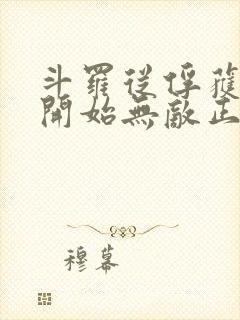 斗羅從俘獲
開始無敵正
穆幕